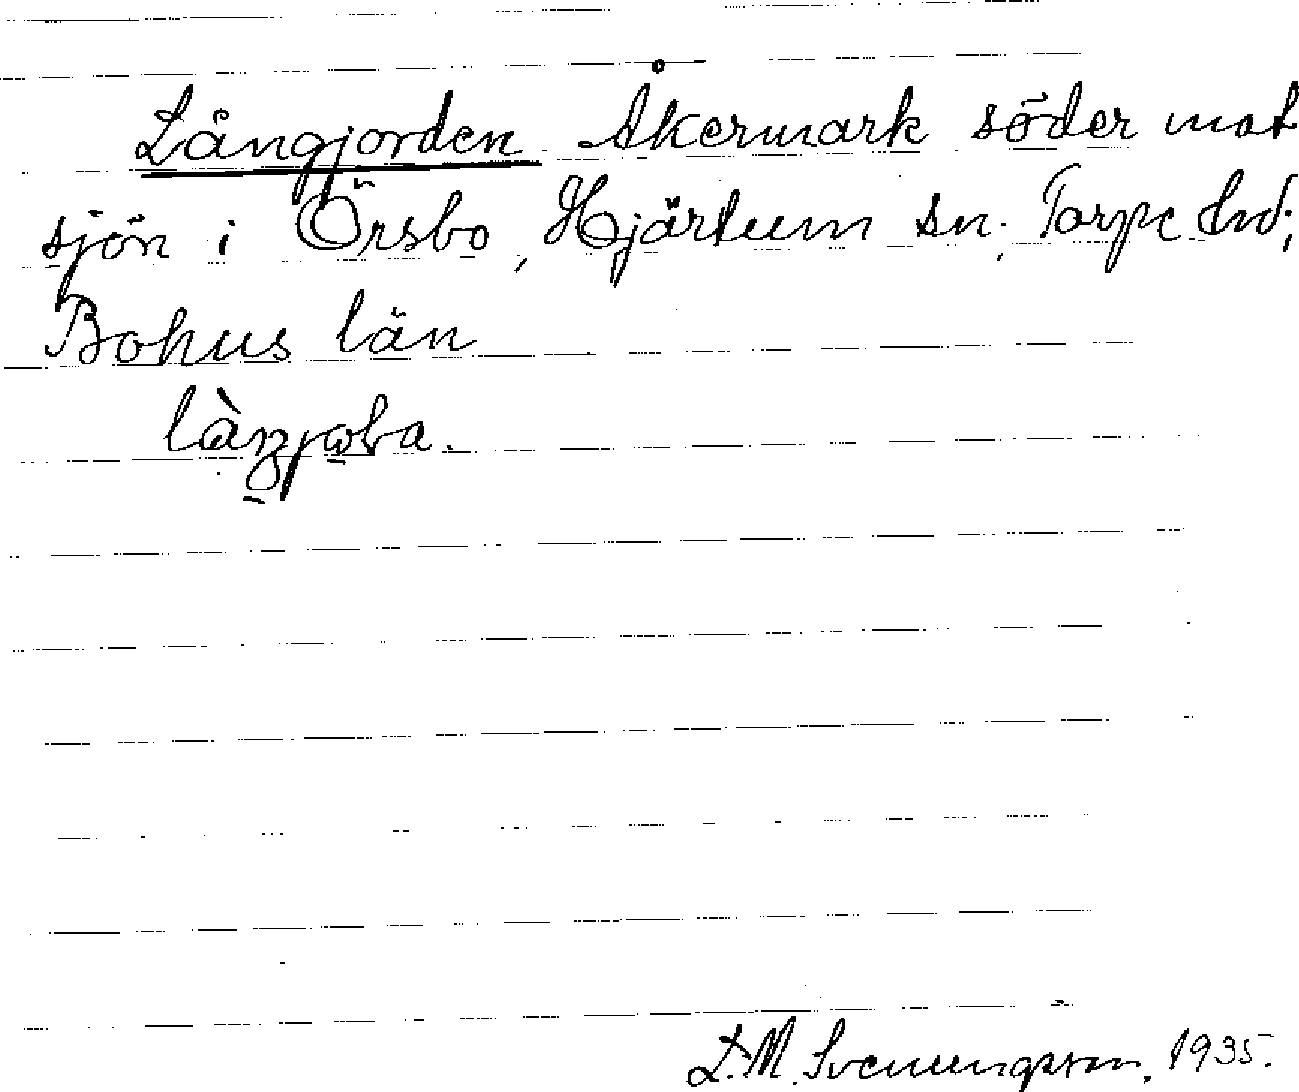 Långjorden Åkermark söder mot
sjön i Örsbo, Hjärtum sn; Torpe hd;
Bohus län
L. M. Svenungsson. 1935.